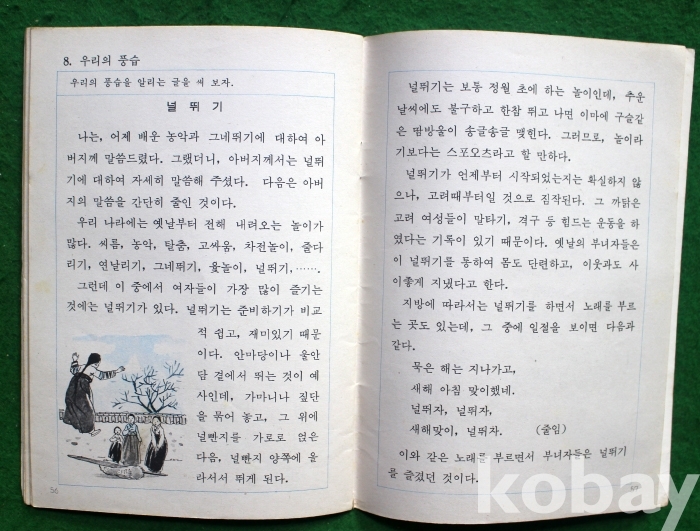 8. 우리의 풍습
우리의 풍습을 알리는 글을 써 보자.
널 뛰 기
나는, 어제 배운 농악과 그네뛰기에 대하여 아
버지께 말씀드렸다. 그랬더니, 아버지께서는 널뛰
기에 대하여 자세히 말씀해 주셨다. 다음은 아버
지의 말씀을 간단히 줄인 것이다.
우리 나라에는 옛날부터 전해 내려오는 놀이가
많다. 씨름, 농악, 탈춤, 고싸움, 차전놀이, 줄다
리기, 연날리기, 그네뛰기, 윷놀이, 널뛰기, …….
그런데 이 중에서 여자들이 가장 많이 즐기는
것에는 널뛰기가 있다. 널뛰기는 준비하기가 비교
적 쉽고, 재미있기 때문
이다. 안마당이나 울안
담 곁에서 뛰는 것이 예
사인데, 가마니나 짚단
을 묶어 놓고, 그 위에
널빤지를 가로로 얹은
다음, 널빤지 양쪽에 올
라서서 뛰게 된다.
56
널뛰기는 보통 정월 초에 하는 놀이인데, 추운
날씨에도 불구하고 한참 뛰고 나면 이마에 구슬같
은 땀방울이 송글송글 맺힌다. 그러므로, 놀이라
기보다는 스포오츠라고 할 만하다.
널뛰기가 언제부터 시작되었는지는 확실하지 않
으나, 고려때부터일 것으로 짐작된다. 그 까닭은
고려 여성들이 말타기, 격구 등 힘드는 운동을 하
였다는 기록이 있기 때문이다. 옛날의 부녀자들은
이 널뛰기를 통하여 몸도 단련하고, 이웃과도 사
이좋게 지냈다고 한다.
지방에 따라서는 널뛰기를 하면서 노래를 부르
는 곳도 있는데, 그 중에 일절을 보이면 다음과
같다.
묵은 해는 지나가고,
새해 아침 맞이했네.
널뛰자, 널뛰자,
새해맞이, 널뛰자. (줄임)
이와 같은 노래를 부르면서 부녀자들은 널뛰기
를 즐겼던 것이다.
57
kobay